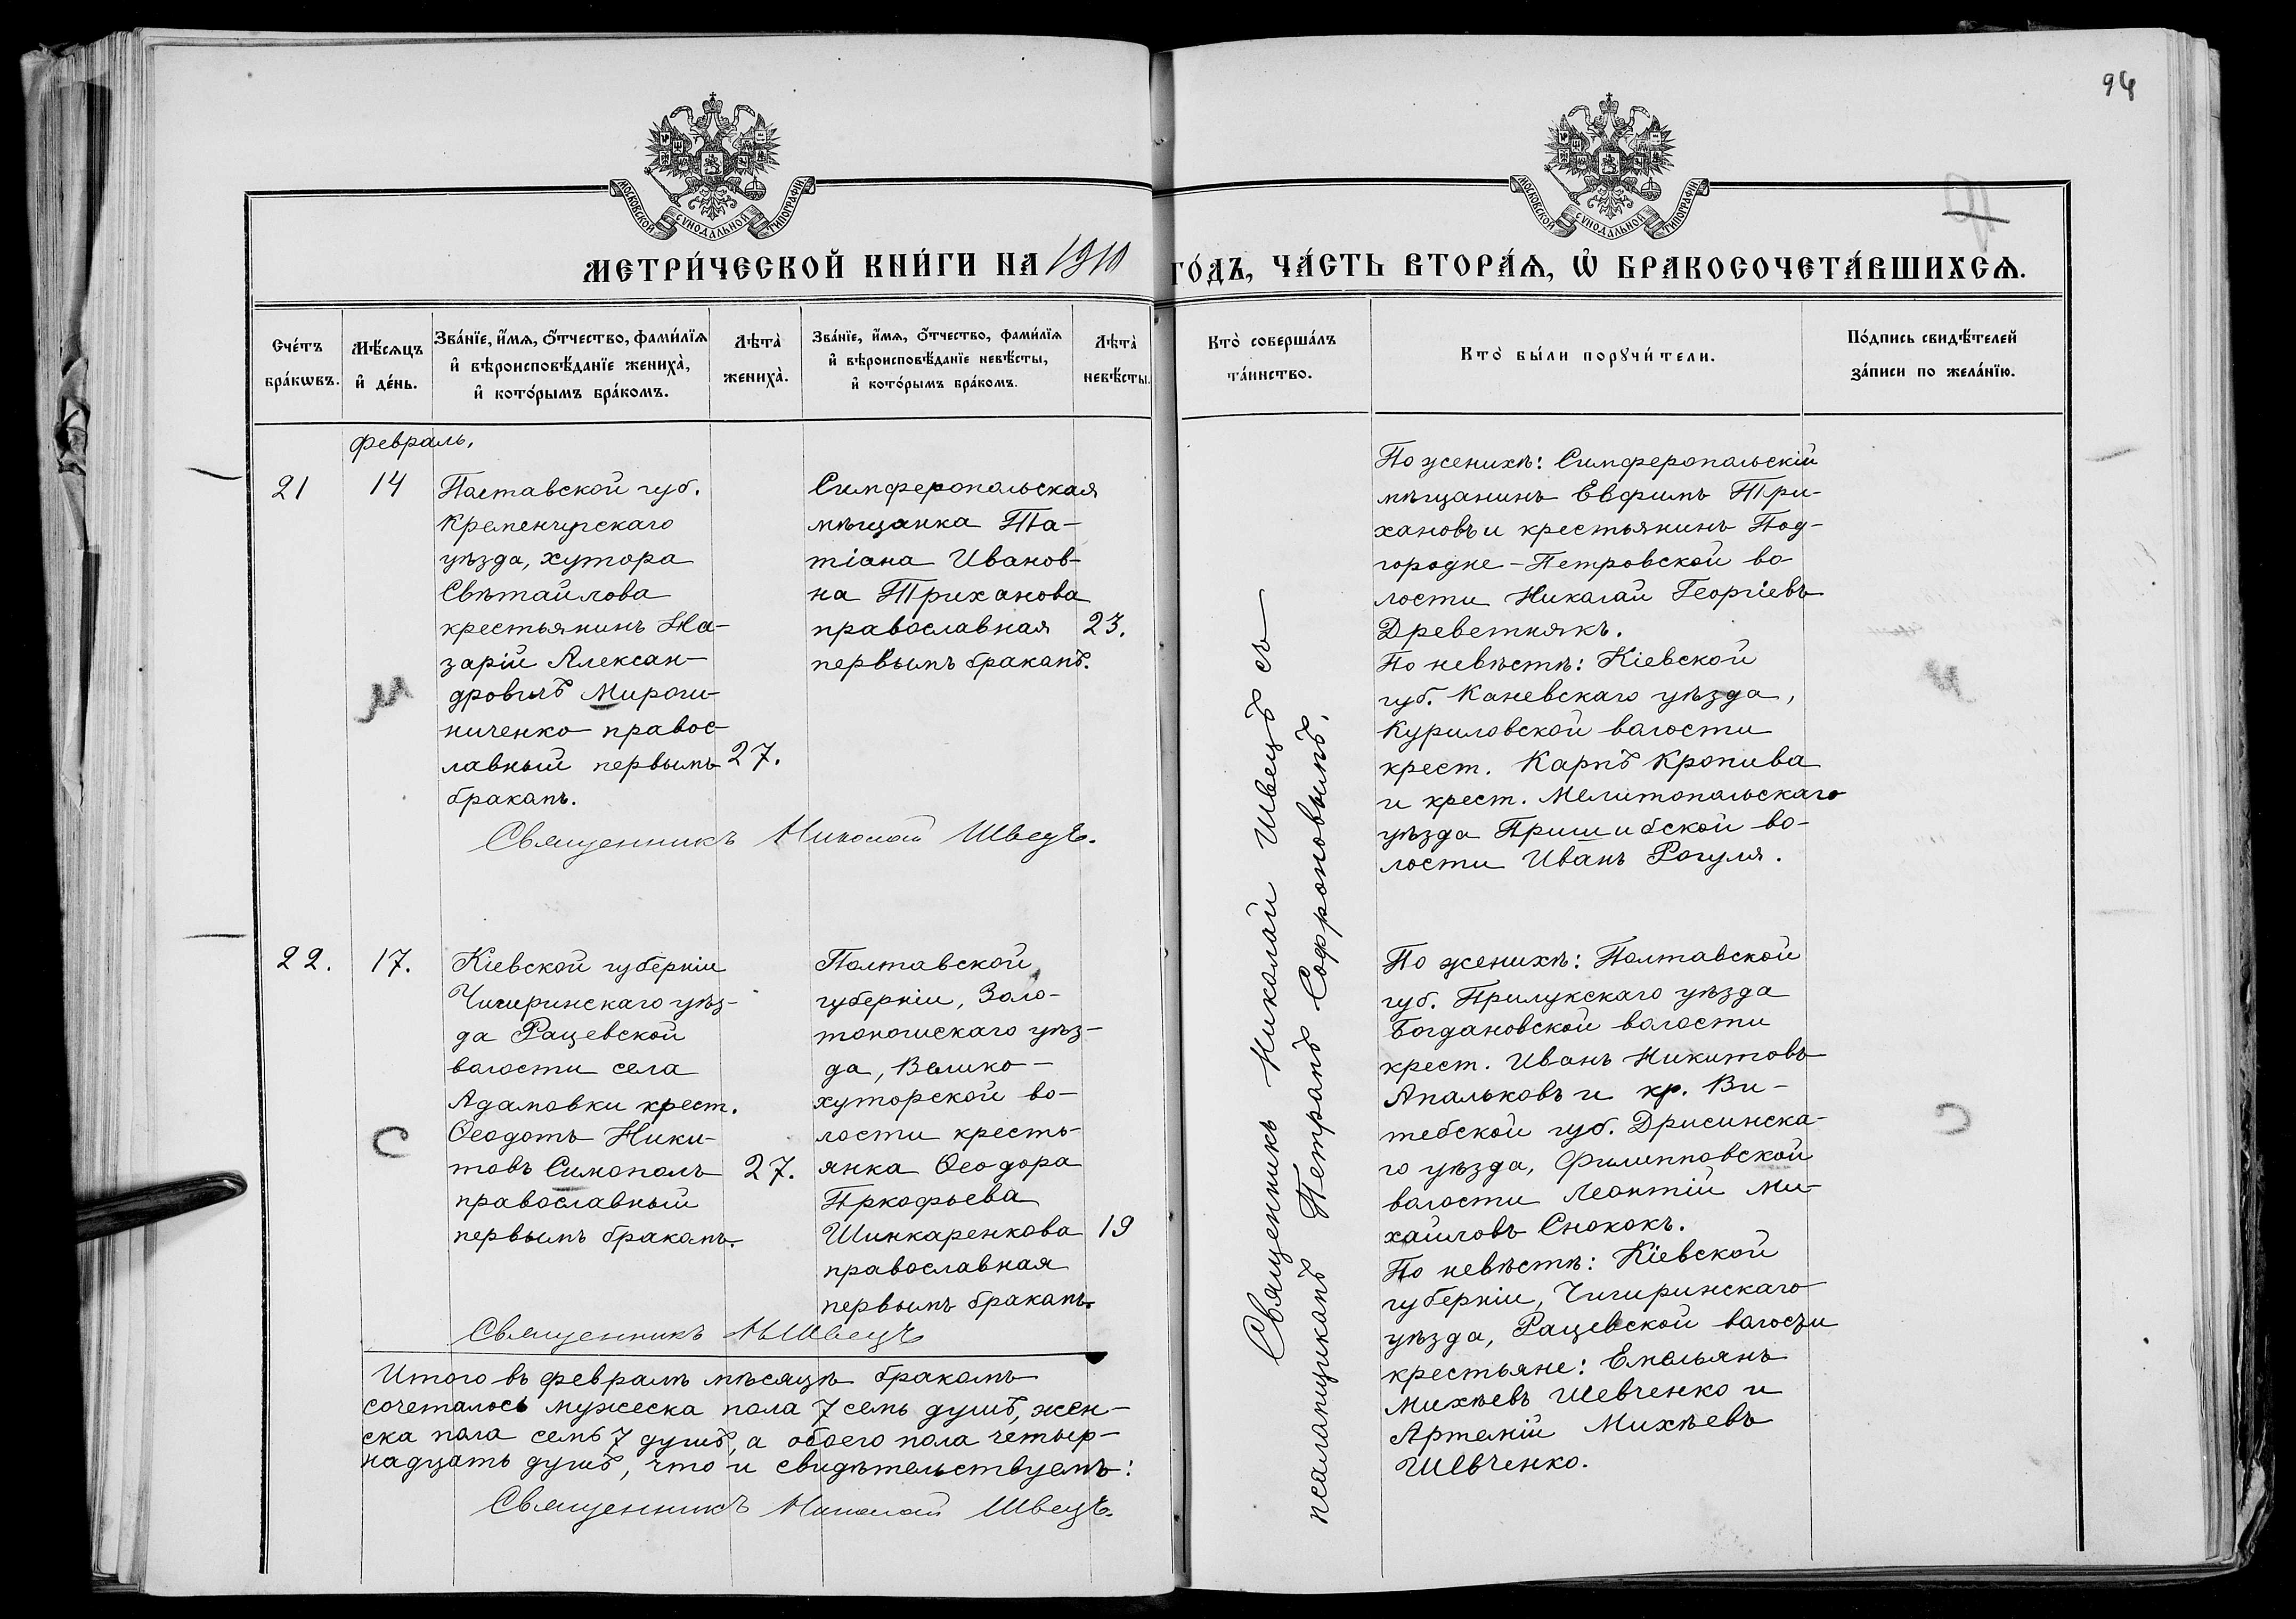 94
МОСКОВСКОЙ СУНОДАЛЬНОЙ ТИПОГРАФІИ
МОСКОВСКОЙ СУНОДАЛЬНОЙ ТИПОГРАФІИ
МЕТРИ́ЧЕСКОЙ КНИ́ГИ НА 1910 ГО́ДЪ, ЧА́СТЬ ВТОРА́Я, Ѡ БРАКОСОЧЕТА́ВШИХСЯ.
Сче́тъ
бра́кѡвъ.
Мѣ́сяцъ
и҆ де́нь.
Зва́нїе, и҆́мя, ѻ҆́тчество, фами́лїя
и҆ вѣроисповѣ́данїе жениха̀,
и҆ кото́рымъ бра́комъ.
Лѣта̀
жениха̀.
Зва́нїе, и҆́мя, ѻ҆́тчество, фами́лїя
и҆ вѣроисповѣ́данїе невѣ́сты,
и҆ кото́рымъ бра́комъ.
Лѣта̀
невѣ́сты.
Кто̀ соверша́лъ
та́инство.
Кто̀ бы́ли порꙋчи́тели.
По́дпись свидѣ́телей
за́писи по жела́нїю.
Февраль.
21
14
Полтавской губ.
Кременчугскаго
уѣзда, хутора
Свѣтайлова
крестьянинъ На-
зарій Алексан-
дровичъ Мирош-
ниченко правос-
лавный первымъ
бракомъ.
27.
Симферопольская
мѣщанка Та-
тіана Иванов-
на Триханова
православная
первымъ бракомъ.
23.
Священникъ Николай Швецъ.
По женихѣ: Симферопольскій
мѣщанинъ Евфимъ Три-
хановъ и крестьянинъ Под-
городне-Петровской во-
лости Николай Георгіевъ
Древетнякъ.
По невѣстѣ: Кіевской
губ. Каневскаго уѣзда,
Куриловской волости
крест. Карпъ Кропива
и крест. Мелитопольскаго
уѣзда Пришибской во-
лости Иванъ Рогуля.
Священникъ Николай Швецъ съ
псаломщикомъ Петромъ Софроновымъ.
22.
17.
Кіевской губерніи
Чигиринскаго уѣз-
да Рацевской
волости села
Адамовки крест.
Ѳеодотъ Ники-
товъ Симополъ
православный
первымъ бракомъ.
27.
Полтавской
губерніи, Золо-
тоношскаго уѣз-
да, Велико-
хуторской во-
лости кресть-
янка Ѳеодора
Пркофьева
Шинкаренкова
православная
первымъ бракомъ.
19
Священникъ Н Швецъ
По женихѣ: Полтавской
губ. Прилукскаго уѣзда
Богдановской волости
крест. Иванъ Никитовъ
Апальковъ и кр. Ви-
тебской губ. Дрисинска-
го уѣзда, Филипповской
волости Леонтій Ми-
хайловъ Снококъ.
По невѣстѣ: Кіевской
губерніи, Чигиринскаго
уѣзда, Рацевской волости
крестьяне: Емельянъ
Михѣевъ Шевченко и
Артемій Михѣевъ
Шевченко.
Итого въ февралѣ мѣсяцѣ бракомъ
сочеталось мужеска пола 7 семь душъ, жен-
ска пола семь 7 душъ, а обоего пола четыр-
надцать душъ, что и свидѣтельствуемъ:
Священникъ Николай Швецъ.